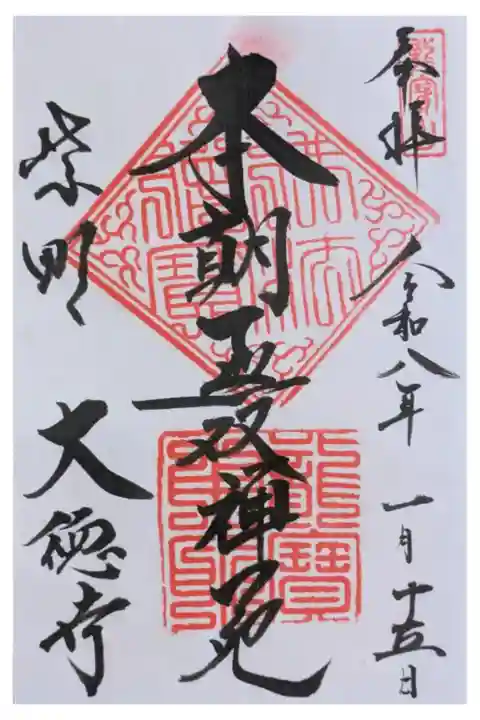 奉拝
令和八年 一月十五日
本朝無双禅苑
紫野 大徳寺